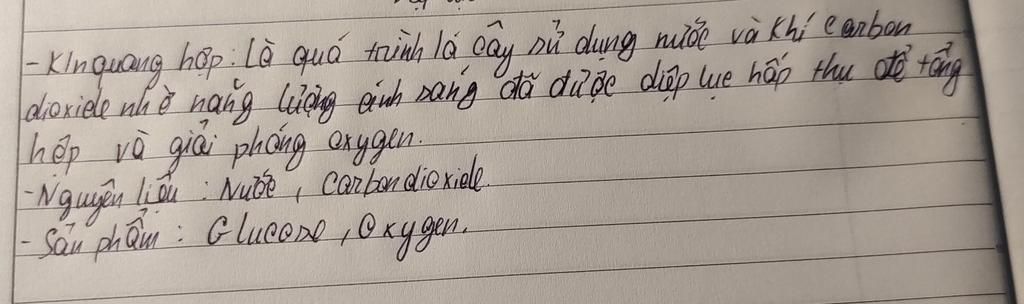 - K/n quang hợp: Là quá trình lá cây sử dụng nước và khí carbon
dioxide nhờ năng lượng ánh sáng đã được diệp lục hấp thụ để tổng
hợp và giải phóng oxygen.
- Nguyên liệu : Nước, carbondioxide.
- Sản phẩm : Glucose, Oxygen.